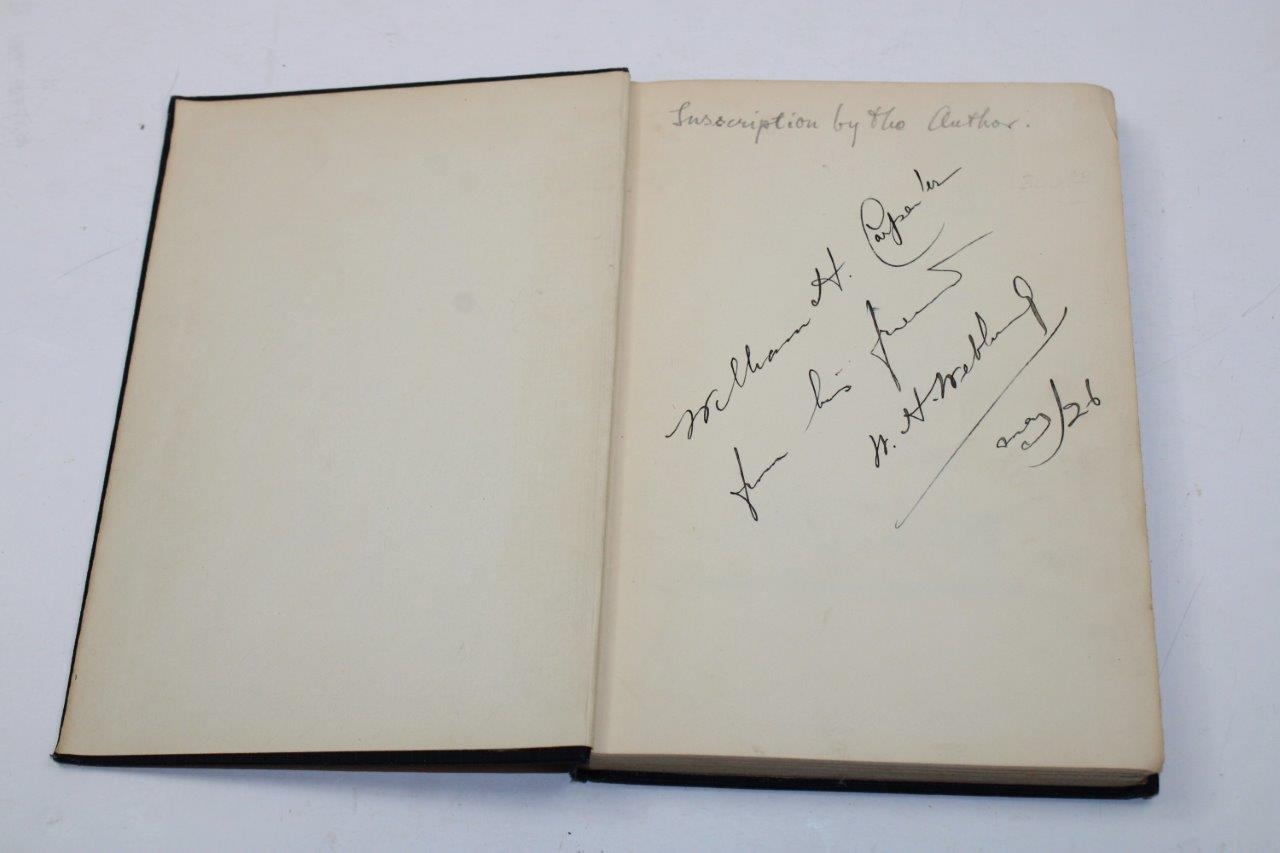 Inscription by the Author.
William H. Carpenter
from his friend
W. H. Webling
May/26